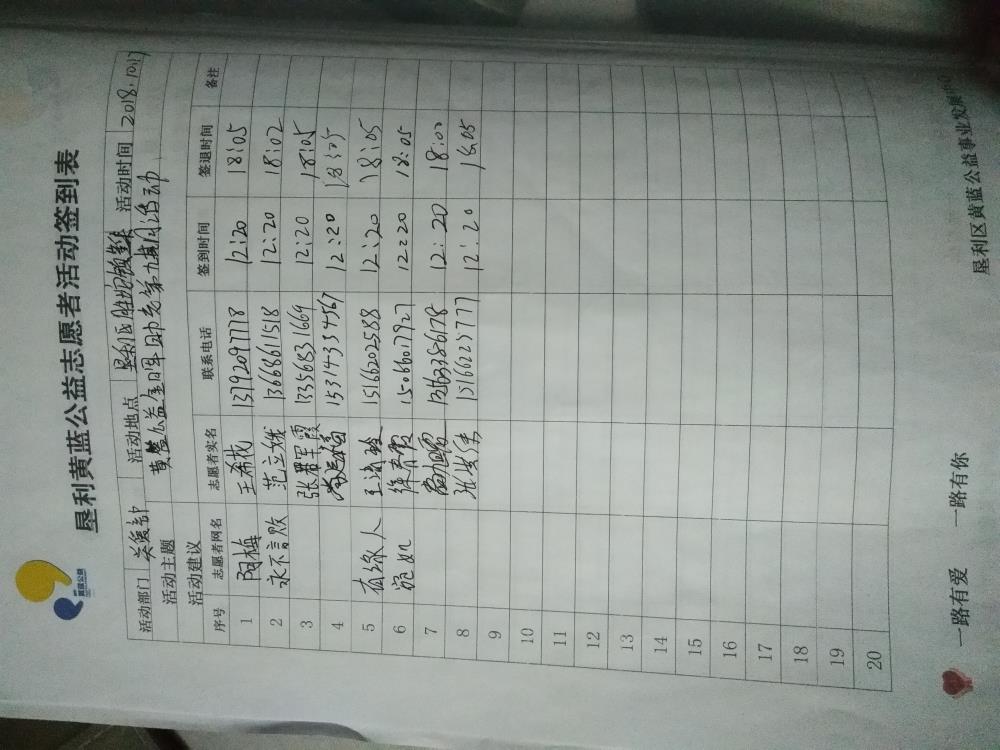 黄蓝公益
垦利黄蓝公益志愿者活动签到表
活动部门 关爱部 活动地点 垦利区胜坨镇 活动时间 2018.10.17
活动主题 黄蓝公益金晖助老第九月活动
活动建议
序号 志愿者网名 志愿者实名 联系电话 签到时间 签退时间 备注
1 阳梅 王希花 13792097778 12:20 18:05
2 永不言败 范立娥 13668611518 12:20 18:02
3 张翠霞 13356831669 12:20 18:05
4 15314334567 12:20 18:05
5 有缘人 王 15166202588 12:20 18:05
6 宛如 徐春霞 15066017927 12:20 18:05
7 13563386178 12:20 18:00
8 张 15166225777 12:20 18:05
9
10
11
12
13
14
15
16
17
18
19
20
一路有爱 一路有你 垦利区黄蓝公益事业发展中心